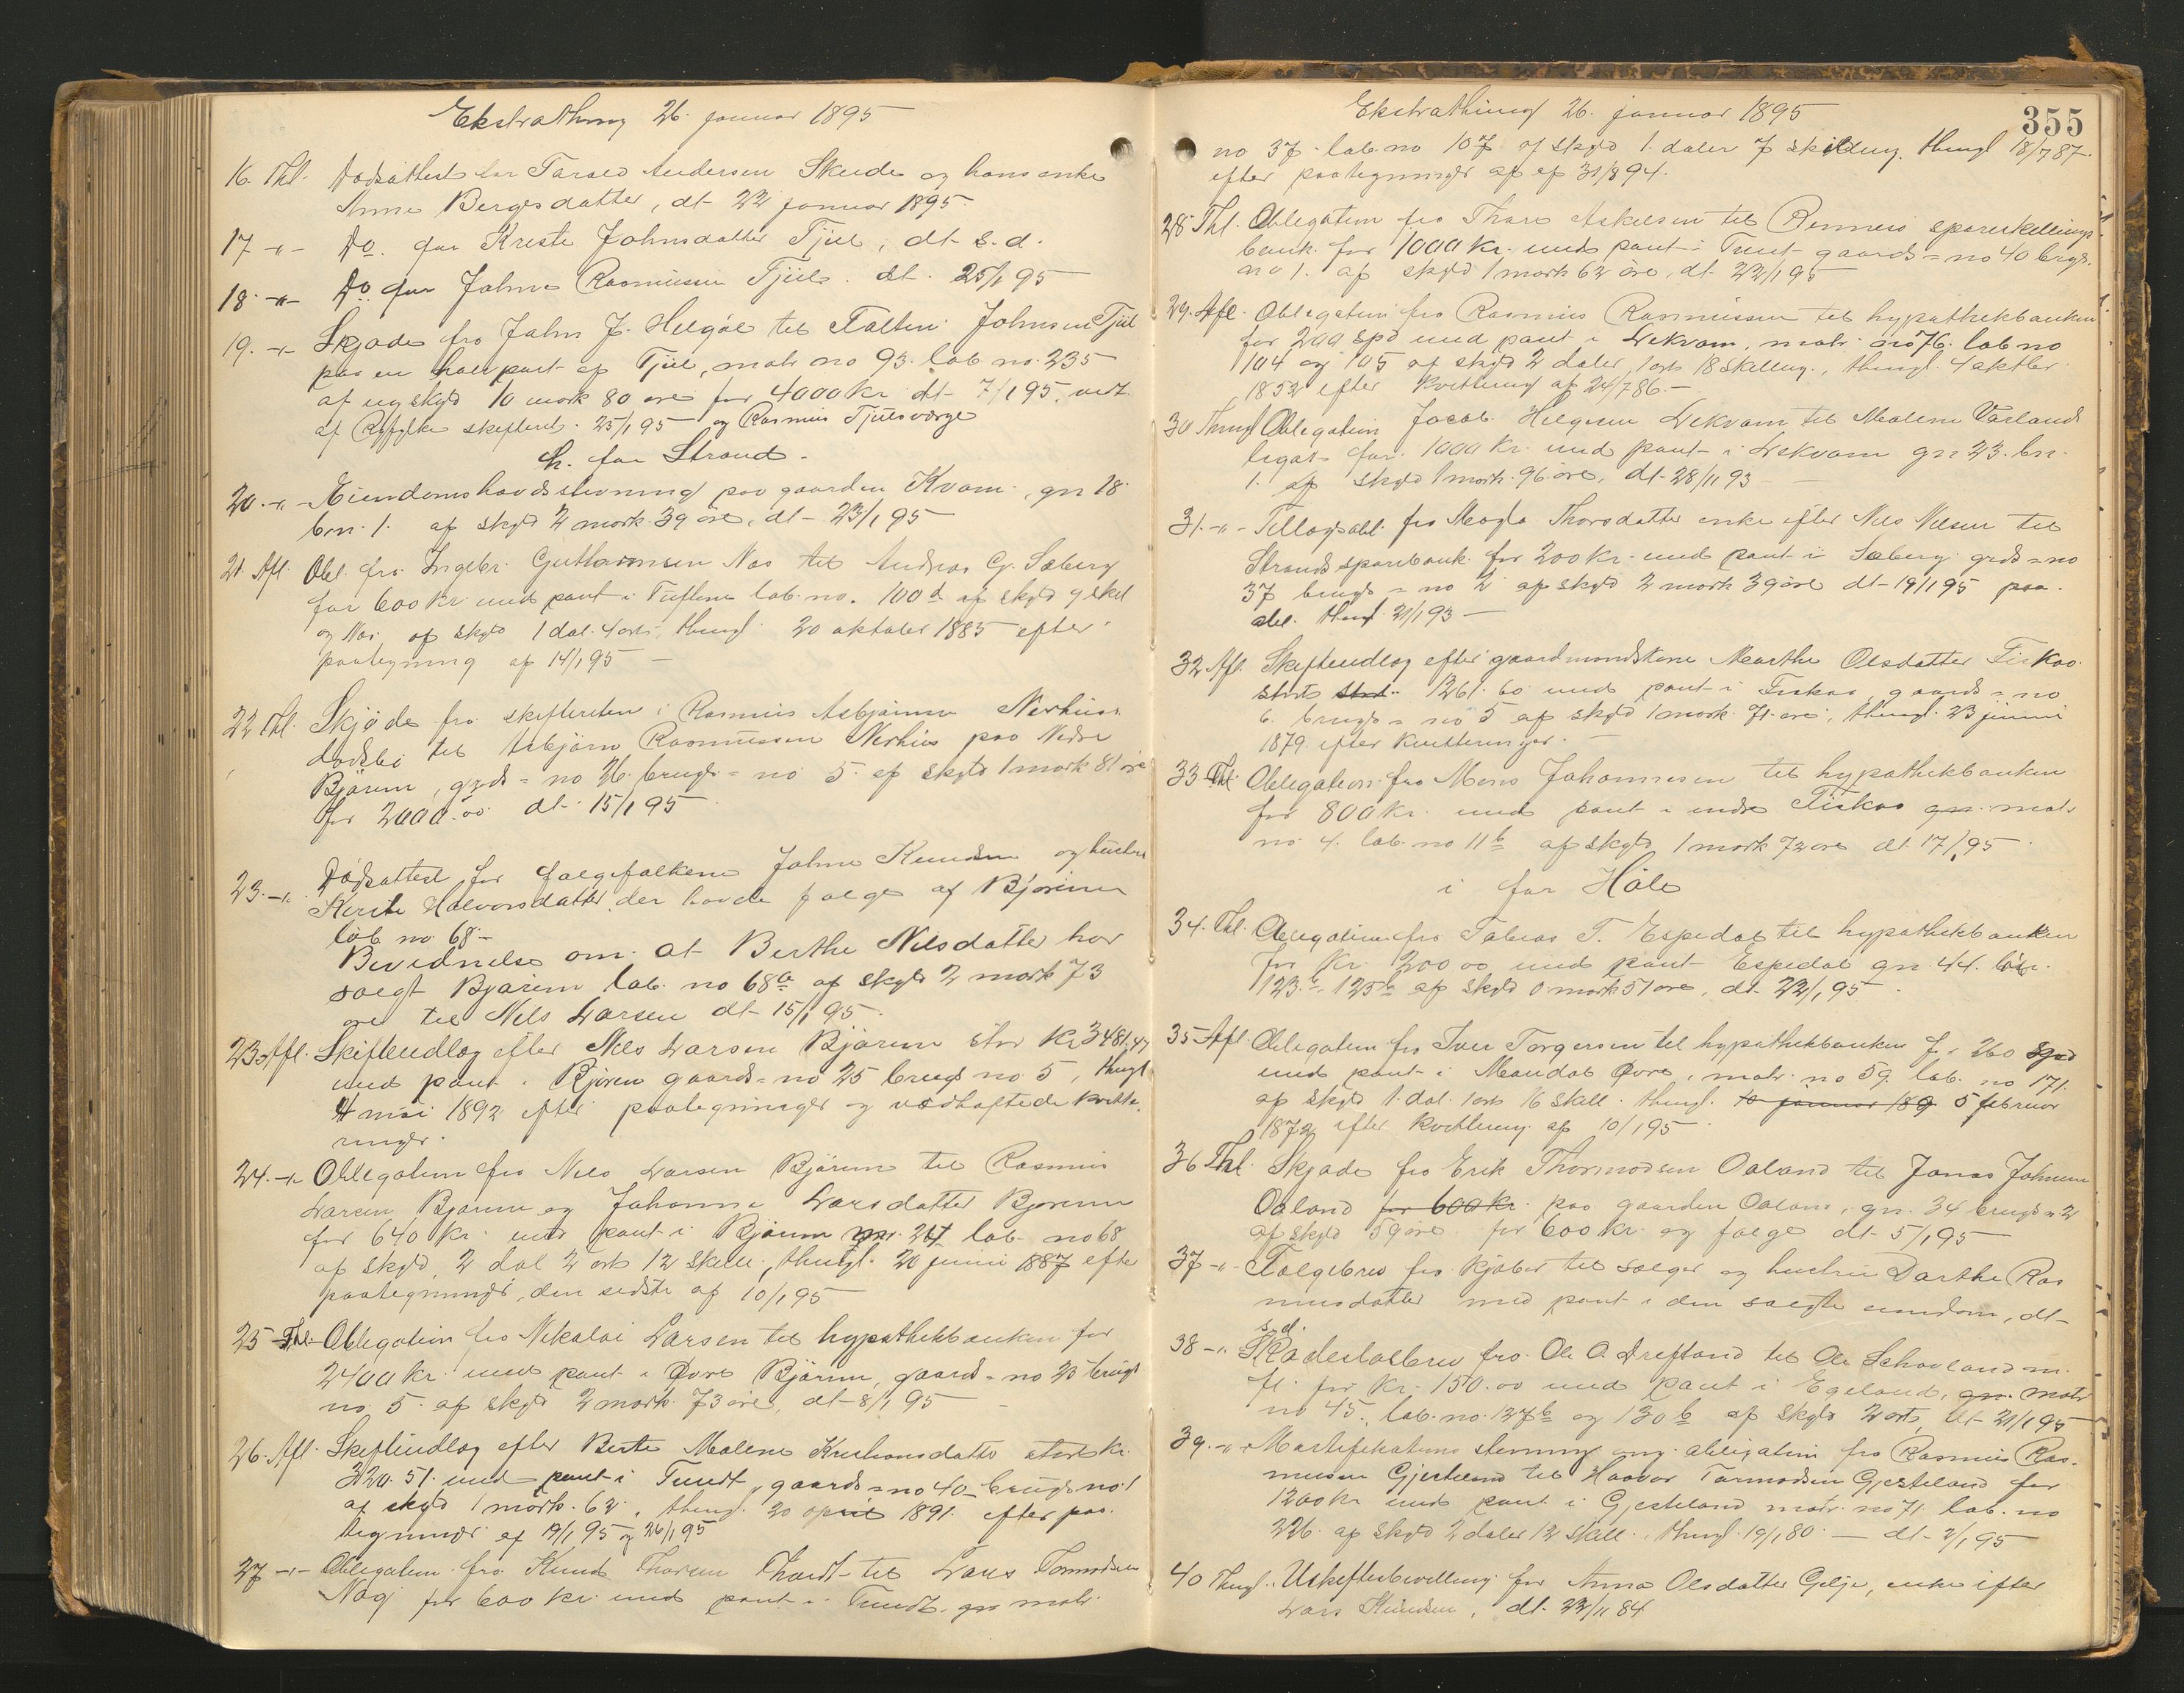 Ekstrathing 26. januar 1895
16. Thl. Dødsattest for Tarald Andersen Skeide og hans enke
Anna Bergesdatter, dt 22 januar 1895
17 -"- Do. for Kreste Johnsdatter Tjul, dt. s. d.
18. -"- Do for Johne Rasmussen Tjul. dt. 25/1 95
19. -"- Skjøde fra John J. Helgøe til Tølten Johnsen Tjul
paa en halvpart af Tjul, matr no 93. løb no. 235
af ny skyld 10 mark 80 øre for 4000 kr dt 7/1 95, vedt.
af Ryfylke skifteret. 25/1 95 og Rasmus Tjuls værge
h. for Strand.
20. -"- Eiendomshævdsstevning paa gaarden Kvam, gn 18
bn. 1. af skyld 2 mark 39 øre, dt 23/1 95
21. Afl. Obl. fra Ingebr. Guttormsen Nos til Andreas G. Søberg
for 600 kr med pant i Tuftene løb. no. 100d af skyld 9 skil
og Nos af skyld 1 dal. 4 ort, thingl. 20 oktober 1885 efter
paategning af 14/1 95
22 Thl. Skjøde fra skifteretten i Rasmus Asbjørnsen Nerhus
dødsbo til Asbjørn Rasmussen Nerhus paa Nedre
Bjørem, grds=no 26. brugs=no 5. af skyld 1 mark 81 øre
for 2000.00 dt. 15/1 95
23. -"- Dødsattest for folgefolkene Johne Knudsen og hustru
Kirste Halvorsdatter, der havde folge af Bjørem
løb no 68
Bevidnelse om at Berthe Nilsdatter har
solgt Bjørem løb. no 68a af skyld 2 mark 73
øre til Nils Larsen dt 15/1 95.
23a Afl. Skifteudlæg efter Nils Larsen Bjørem stor Kr 3481,47
med pant i Bjørem gaards=no 25 brugs no 5, thingl
4 mai 1892 efter paategninger og vedhæftede kvitte-
ringer.
24. -"- Obligation fra Nils Larsen Bjørem til Rasmus
Larsen Bjørem og Johanna Larsdatter Bjørem
for 640 kr. med pant i Bjørem mnr. 27 løb no 68
af skyld 2 dal 2 ort 12 skill, thingl. 20 juni 1887 efter
paategninger, den sidste af 10/1 95
25 Thl. Obligation fra Nikolai Larsen til hypothekbanken for
2400 kr. med pant i Øvre Bjørem, gaards=no 25 brugs
no. 5. af skyld 2 mark 73 øre, dt 8/1 95
26. Afl. Skifteudlæg efter Berte Malene Kristiansdatter stort kr.
320.51 med pant i Tundt, gaards=no 40 brugs no. 1
af skyld 1 mark. 62, thingl. 20 april 1891. efter paa-
tegninger af 19/1 95 og 26/1 95
27 -"- Obligation fra Knud Thorsen Thordt til Lars Tormodsen
Nag for 600 kr med pant i Tundt, gn matr.
355
Ekstrathing 26. januar 1895
no 37. løb no 107 af skyld 1. daler 7 skilling. thingl 18/7 87.
efter paategninger af 31/8 94.
28 Thl. Obligation fra Thore Askelsen til Rennesø spareskillings-
bank. for 1000 kr. med pant i Tundt gaards=no 40 brgs.
no 1. af skyld 1 mark 62 øre, dt 22/1 95
29. Afl. Obligation fra Rasmus Rasmussen til hypothekbanken
for 200 spd med pant i Lekvam, matr. no 76. løb no
104 og 105 af skyld 2 daler 1 ort 18 skilling., thingl. 4 oktbr.
1852 efter kvittering af 24/7 86.
30 Thingl Obligation Jacob Helgesen Lekvam til Malene Varlands
legat for. 1000 kr. med pant i Lekvam gn 23. bn.
1. af skyld 1 mark. 96 øre, dt. 28/11 93
31. -"- Tillægsobl. fra Magla Thorsdatter enke efter Nils Nilsen til
Strands sparebank for 200 kr. med pant i Søberg grds=no
37 brugs=no 2 af skyld 2 mark 39 øre dt 19/1 95 paa-
obl. thingl 21/1 93
32 Afl. Skifteudlæg efter gaardmandskone Marthe Olsdatter Fiskaa
stort 1261.60 med pant i Fiskaa, gaards=no
6. brugs=no 5 af skyld 1 mark. 71 øre, thingl. 23 juni
1879. efter kvitteringer.
33 Thl. Obligation fra Mons Johannesen til hypothekbanken
for 800 kr. med pant i indre Fiskaa gn. matr
no. 4. løb. no 11b af skyld 1 mark 72 øre dt 17/1 95.
i for Høle
34. Thl. Obligation fra Tobias T. Espedal til hypothekbanken
for kr. 200 00 med pant Espedal gn. 44. løbn.
123. 125b af skyld 0 mark 51 øre, dt. 22/1 95.
35 Afl. Obligation fra Iver Torgersen til hypothekbanken for 260 spd
med pant i Mandal Øvre, matr. no 59. løb. no 171.
af skyld 1. dal. 1 ort 16 skill. thingl. 10 januar 189 5 februar
1872 efter kvittering af 10/1 95.
36 Thl. Skjøde fra Erik Thormodsen Oaland til Jonas Johnsen
Oaland for 600 kr. paa gaarden Oaland, gn. 34 brugsn 2
af skyld 59 øre for 600 kr. og folge dt 5/1 95
37 -"- Folgebrev fra kjøber til sælger og hustru Dorthe Ras
musdatter med pant i den solgte eiendom, dt
s. d.
38 -"- Skadesløsbrev fra Ole O. Dreftand til Ole Schooland m.
fl. for kr. 150.00 med pant i Egeland, gn. matr
no 45., løb. no. 127b og 130b af skyld 2 ort, dt 21/1 95
39. -"- Mortifikations stevning ang. obligation fra Rasmus Ras-
mussen Gjesteland til Haavor Tormodsen Gjesteland for
1200 kr med pant i Gjesteland matr. no 71 løb. no
226. af skyld 2 daler 12 skill., thingl. 19/1 80. — dt 2/1 95
40 Thingl. Uskiftetbevilling for Anna Olsdatter Gilje, enke efter
Lars Knudsen, dt. 22/11 84